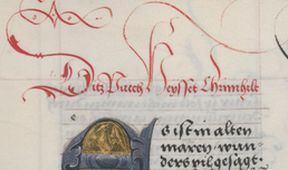 Ditz Puech Heysset Chrimhilt
Uns ist in alten
maren wun
ders vil gesagt.